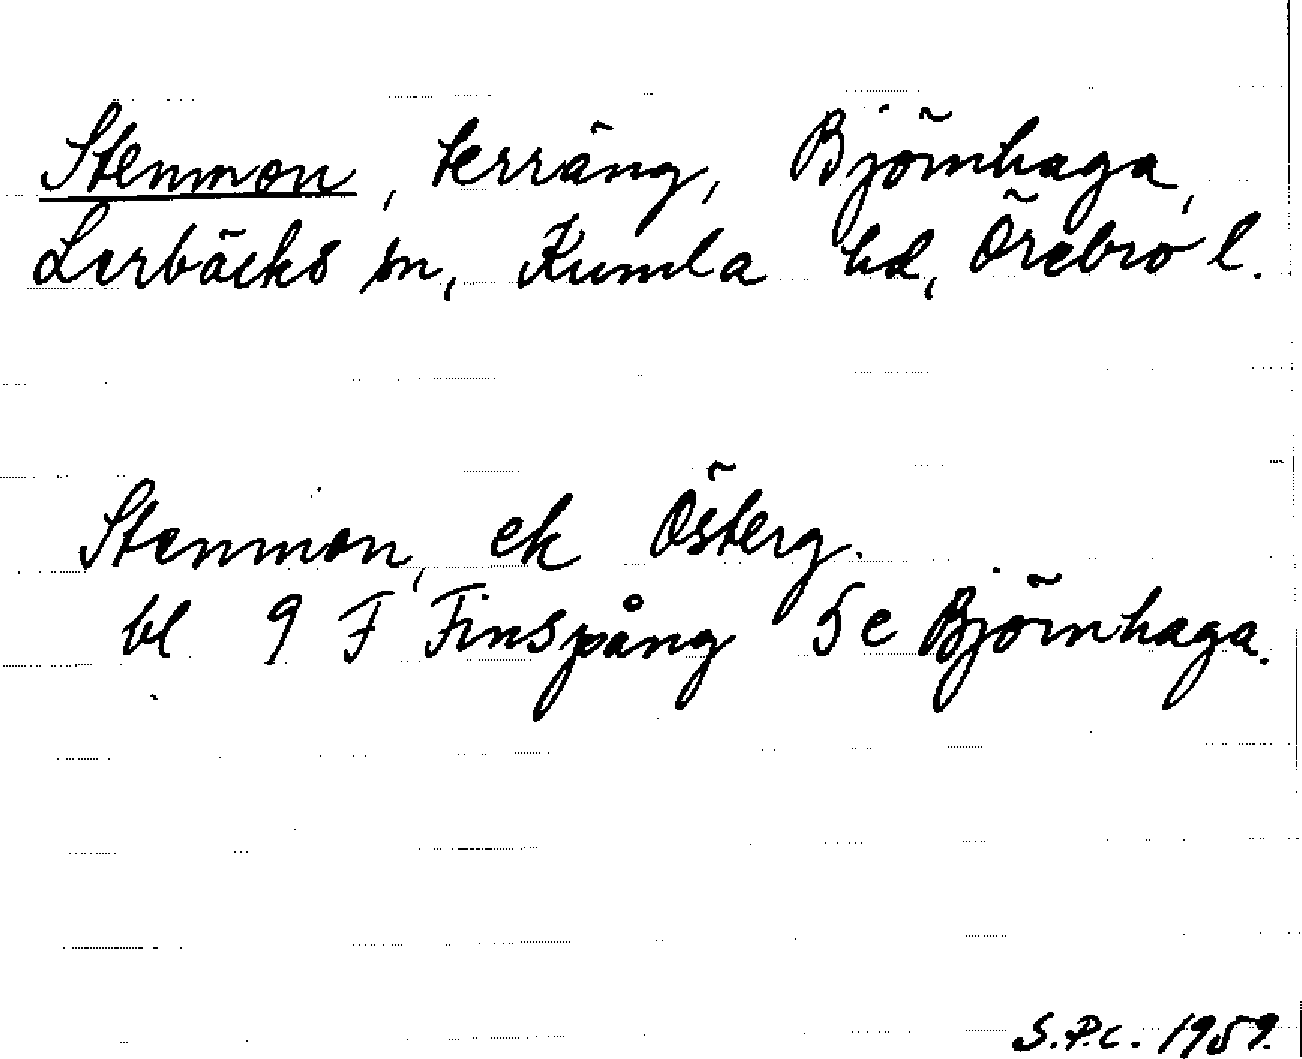 Stenmon, terräng, Björnhaga,
Lerbäcks sn, Kumla hd, Örebro l.
Stenmon, ek Österg.
bl 9 F Finspång 5 e Björnhaga.
S.P.C. 1959.